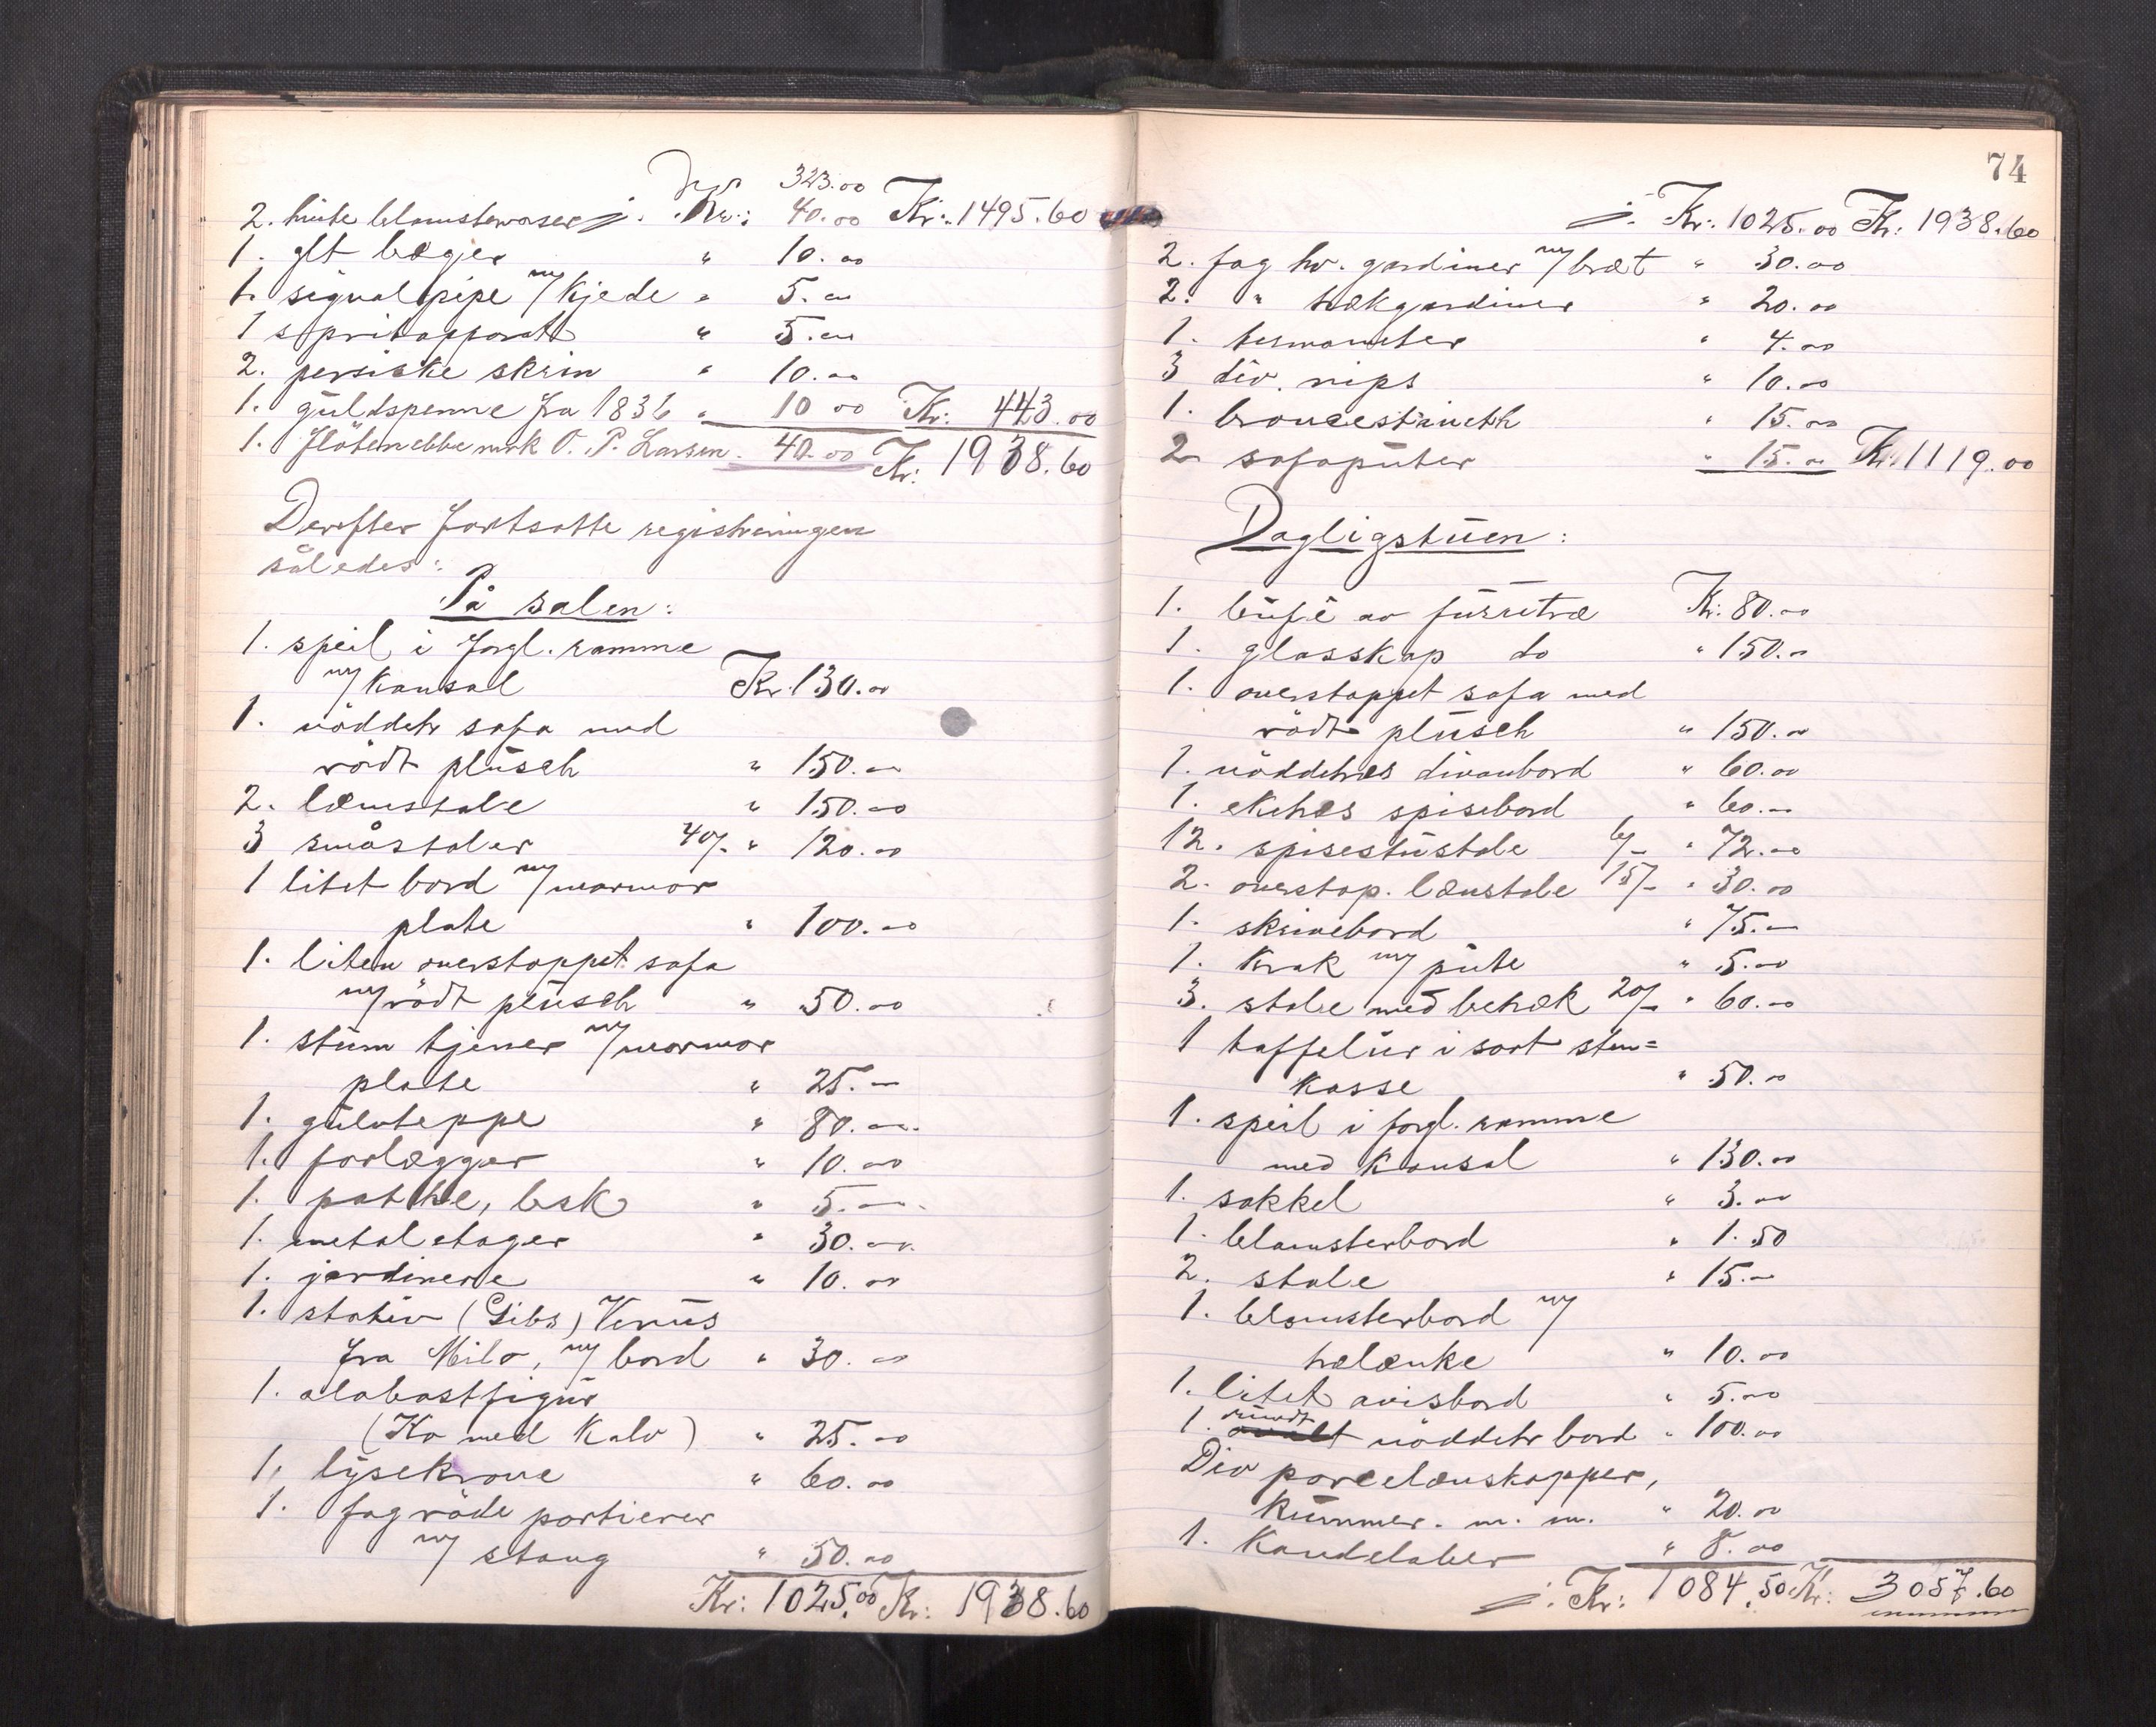 323.00
2. hvite blomstervaser j. Kr: 40.00 Kr: 1495.60
1. glt bæger " 10.00
1. signalpipe m/ kjede " 5.00
1 spritapparat " 5.00
2. persiske skrin " 10.00
1. guldspenne fra 1836 " 10 00 Kr: 443.00
1. flötenebbe mrk O. P. Larsen. 40.00 Kr: 1938.60
Derefter fortsatte registreringen
således:
På salen:
1. speil i forgl. ramme
m/ konsol Kr. 130.00
1. nöddetr sofa med
rödt plüsch " 150.00
2. lænstole " 150.00
3 småstoler 40/- " 120.00
1 litet bord m/ marmor
plate " 100.00
1. liten overstoppet sofa
m/ rödt plüsch " 50.00
1. stum tjener m/ marmor
plate " 25.00
1. gulvteppe " 80.00
1. forlægger " 10.00
1. potte, besk " 5.00
1. metal etager " 30.00
1. jardinere " 10.00
1. stativ (Gibs) Venus
fra Milo, m/ bord " 30.00
1. alabastfigur
(Ko med kalv) " 25.00
1. lysekrone " 60.00
1. fag röde portierer
m/ stang " 50.00
Kr: 1025.00 Kr: 1938.60
74
j. Kr: 1025.00 Kr: 1938.60
2. fag hv. gardiner m/ bræt " 30.00
2. " trækgardiner " 20.00
1. termometer " 4.00
3 div. nips " 10.00
1. broncestinett " 15.00
2 sofaputer " 15.00 Kr. 1119.00
Dagligstuen:
1. büfe av furretræ Kr. 80.00
1. glasskap do " 150.00
1. overstoppet sofa med
rödt plüsch " 150.00
1. nöddetræs divanbord " 60.00
1. eketræs spisebord " 60.00
12. spisestustole 6/- " 72.00
2. overstop. lænstole 15/- " 30.00
1. skrivebord " 75.00
1. krak m/ pute " 5.00
3. stole med betræk 20/- " 60.00
1 taffelur i sort sten=
kasse " 50.00
1. speil i forgl. ramme
med konsol " 130.00
1. sokkel " 3.00
1. blomsterbord " 1.50
2. stole " 15.00
1. blomsterbord m/
trælænke " 10.00
1. litet avisbord " 5.00
1. rundt ovalt nöddetr bord " 100.00
Div porcelænskopper,
kummer. m. m. " 20.00
1. Kandelaber " 8.00
j. Kr: 1084.50 Kr: 3057.60